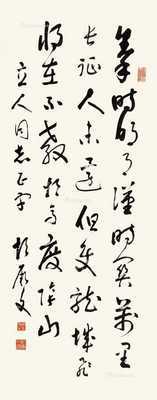 秦时明月汉时关万里
长征人未还但使龙城飞
将在不教胡马度阴山
立人同志正字 胡厥文